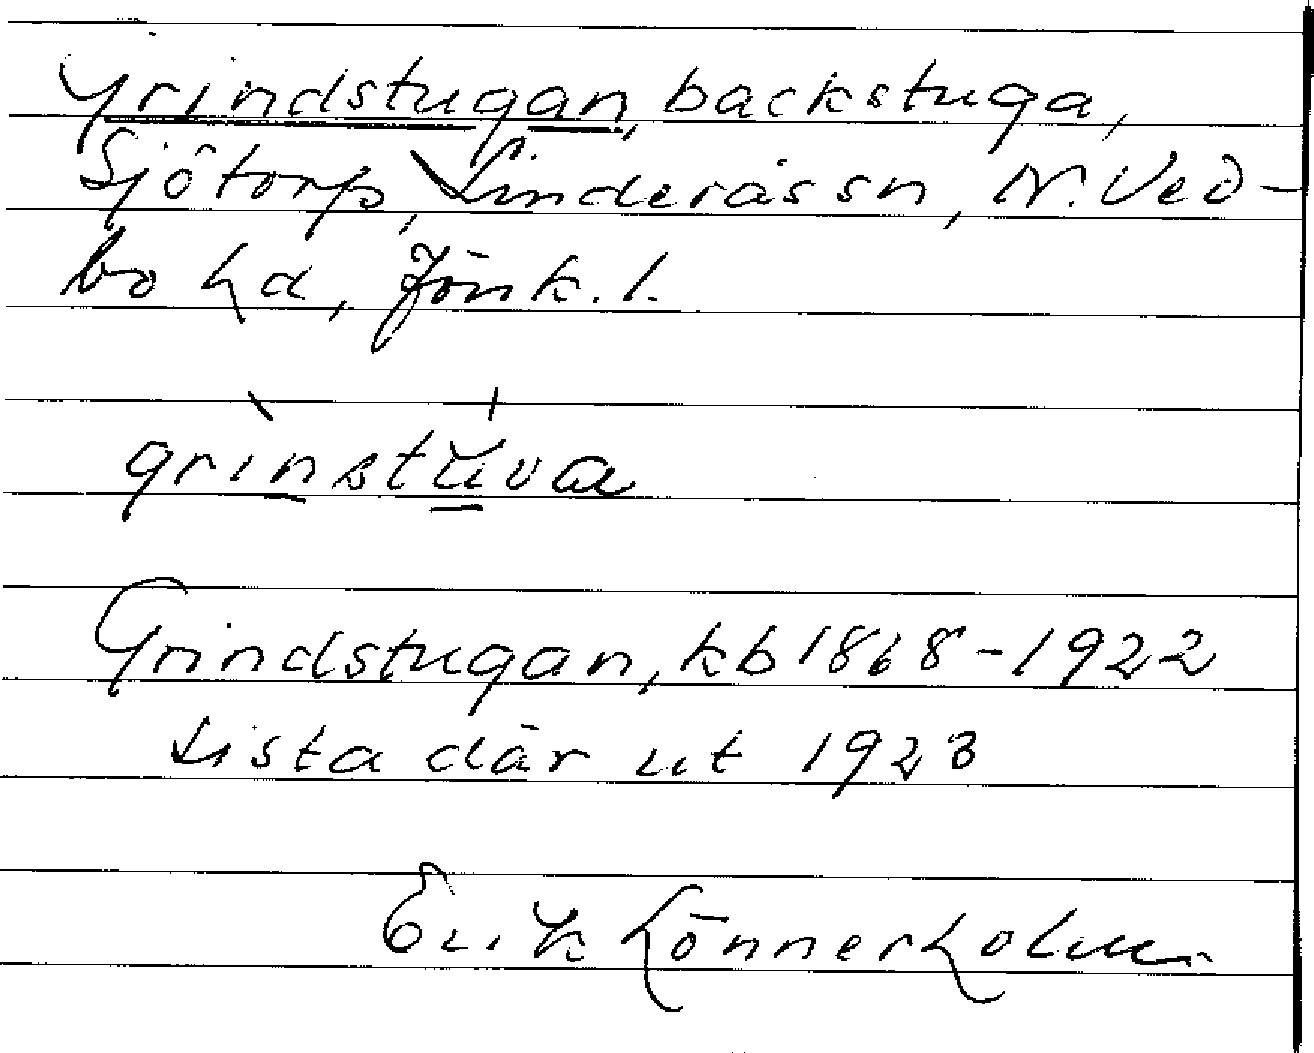 Grindstugan, backstuga,
Sjötorp, Linderås sn, N. Ved-
bo hd, Jönk. l.
grinstuva
Grindstugan, kb 1868-1922
Sista där ut 1923
Erik Lönnerholm